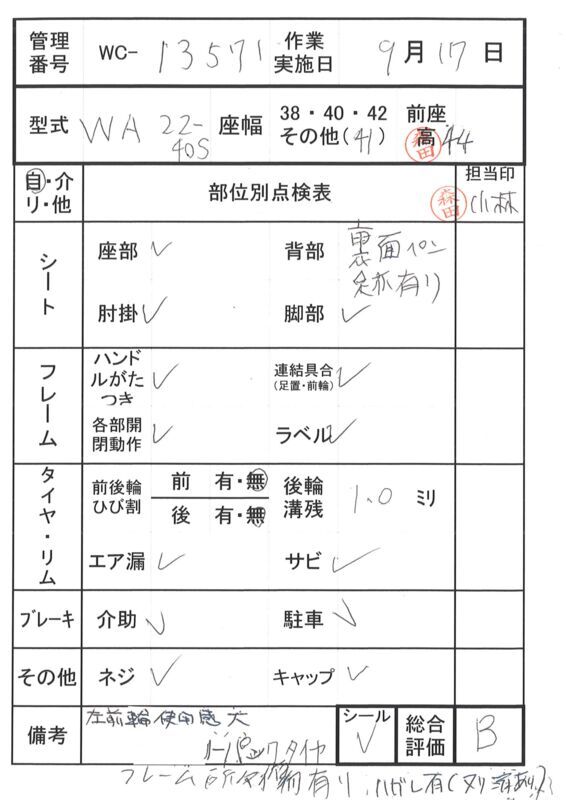 管理番号 WC- 13571 作業実施日 9月17日
型式 WA 22-40S 座幅 38・40・42 その他(41) 前座高 44
森田
自・介 リ・他 部位別点検表 担当印
森田 小林
シート 座部 ✓ 背部 裏面ペン跡有り
肘掛 ✓ 脚部 ✓
フレーム ハンドルがたつき ✓ 連結具合(足置・前輪) ✓
各部開閉動作 ✓ ラベル ✓
タイヤ・リム 前後輪ひび割 前 有・無 後輪溝残 1.0 ミリ
後 有・無
エア漏 ✓ サビ ✓
ブレーキ 介助 ✓ 駐車 ✓
その他 ネジ ✓ キャップ ✓
備考 左前輪使用感大 シール ✓ 総合評価 B
タイヤ
フレーム 有り ハガレ有